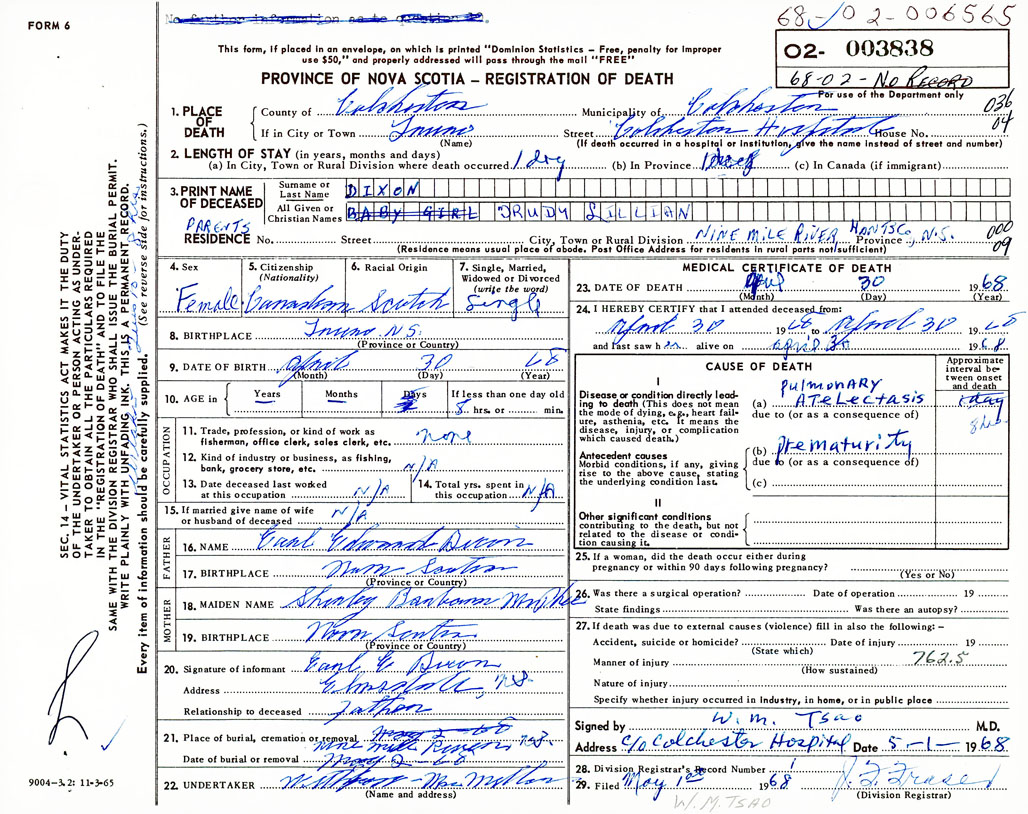 FORM 6
No further information as to question 20.
68-02-006565
02- 003838
68-02-No RECORD
For use of the Department only
This form, if placed in an envelope, on which is printed "Dominion Statistics – Free, penalty for improper
use $50," and properly addressed will pass through the mail "FREE"
PROVINCE OF NOVA SCOTIA – REGISTRATION OF DEATH
1. PLACE OF DEATH
County of Colchester Municipality of Colchester 036
If in City or Town Truro Street Colchester Hospital House No. 04
(Name) (If death occurred in a hospital or institution, give the name instead of street and number)
2. LENGTH OF STAY (in years, months and days)
(a) In City, Town or Rural Division where death occurred 1 day (b) In Province 1 day (c) In Canada (if immigrant)
3. PRINT NAME OF DECEASED
Surname or Last Name DIXON
All Given or Christian Names BABY GIRL TRUDY LILLIAN
PARENTS
RESIDENCE No. Street City, Town or Rural Division NINE MILE RIVER, HANTS CO, Province N.S. 000
(Residence means usual place of abode. Post Office Address for residents in rural parts not sufficient) 09
4. Sex Female
5. Citizenship (Nationality) Canadian
6. Racial Origin Scotch
7. Single, Married, Widowed or Divorced (write the word) Single
8. BIRTHPLACE Truro N.S.
(Province or Country)
9. DATE OF BIRTH April 30 68
(Month) (Day) (Year)
10. AGE in Years Months Days If less than one day old
8 hrs. or min.
OCCUPATION
11. Trade, profession, or kind of work as
fisherman, office clerk, sales clerk, etc. none
12. Kind of industry or business, as fishing,
bank, grocery store, etc. N/A
13. Date deceased last worked
at this occupation N/A
14. Total yrs. spent in
this occupation N/A
15. If married give name of wife
or husband of deceased N/A
FATHER
16. NAME Earl Edward Dixon
17. BIRTHPLACE Nova Scotia
(Province or Country)
MOTHER
18. MAIDEN NAME Shirley Barbara McPhee
19. BIRTHPLACE Nova Scotia
(Province or Country)
20. Signature of informant Earl E Dixon
Address Elmsdale, N.S.
Relationship to deceased Father
21. Place of burial, cremation or removal May 2-68
Nine Mile River N.S.
Date of burial or removal May 2-68
22. UNDERTAKER
(Name and address)
MEDICAL CERTIFICATE OF DEATH
23. DATE OF DEATH April 30 1968
(Month) (Day) (Year)
24. I HEREBY CERTIFY that I attended deceased from:
April 30 1968 to April 30 1968
and last saw her alive on April 30 1968
CAUSE OF DEATH
Approximate interval between onset and death
I
Disease or condition directly leading to death (This does not mean the mode of dying, e.g., heart failure, asthenia, etc. It means the disease, injury, or complication which caused death.)
(a) PULMONARY ATELECTASIS 1 day
due to (or as a consequence of) 8 hrs.
Antecedent causes
Morbid conditions, if any, giving rise to the above cause, stating the underlying condition last.
(b) Prematurity
due to (or as a consequence of)
(c)
II
Other significant conditions
contributing to the death, but not related to the disease or condition causing it.
25. If a woman, did the death occur either during
pregnancy or within 90 days following pregnancy?
(Yes or No)
26. Was there a surgical operation? Date of operation 19
State findings Was there an autopsy?
27. If death was due to external causes (violence) fill in also the following: –
Accident, suicide or homicide? Date of injury 19
(State which)
762.5
Manner of injury
(How sustained)
Nature of injury
Specify whether injury occurred in industry, in home, or in public place
Signed by W. M. Tsao M.D.
Address c/o Colchester Hospital Date 5-1-1968
28. Division Registrar's Record Number
29. Filed May 1st 1968 J. F. Fraser
(Division Registrar)
W. M. TSAO
SEC. 14 – VITAL STATISTICS ACT MAKES IT THE DUTY
OF THE UNDERTAKER OR PERSON ACTING AS UNDER-
TAKER TO OBTAIN ALL THE PARTICULARS REQUIRED
IN THE "REGISTRATION OF DEATH" AND TO FILE THE
SAME WITH THE DIVISION REGISTRAR WHO SHALL ISSUE THE BURIAL PERMIT.
WRITE PLAINLY WITH UNFADING INK. THIS IS A PERMANENT RECORD.
Every item of information should be carefully supplied. (See reverse side for instructions.)
9004-3.2: 11-3-65